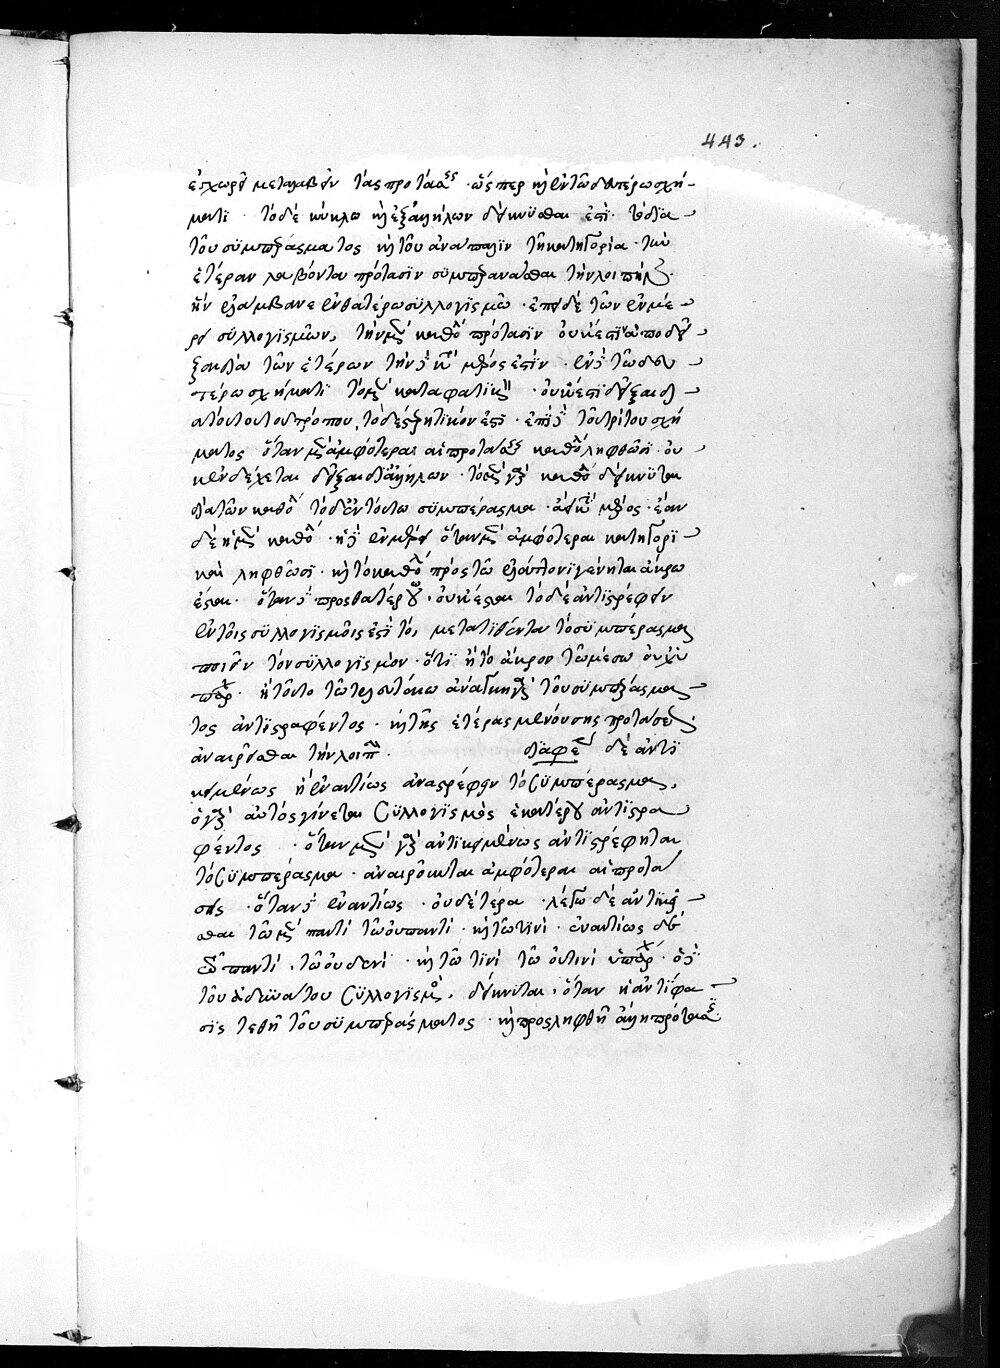 443.
ἐγχωρεῖ μεταλαβεῖν τὰς προτάσεις· ὥσπερ καὶ ἐν τῷ δευτέρω σχή-
ματι· τὸ δὲ κύκλω καὶ ἐξ ἀλλήλων δείκνυσθαι ἐστὶ τὸ διὰ
τοῦ συμπεράσματος καὶ τοῦ ἀνάπαλιν τῆ κατηγορία τὴν
ἑτέραν λαβόντα πρότασιν συμπεράνασθαι τὴν λοιπὴν
ἣν ἐλάμβανε ἐν θατέρω συλλογισμῶ· ἐπὶ δὲ τῶν ἐν μέ-
ρει συλλογισμῶν, τὴν μὲν καθόλου πρότασιν οὐκ ἔστιν ἀποδεῖ-
ξαι διὰ τῶν ἑτέρων τὴν δὲ κατὰ μέρος ἐστίν· ἐν δὲ τῶ δευ-
τέρω σχήματι τὸ μὲν καταφατικὸν οὐκ ἔστι δεῖξαι δι
ὰ τούτου τοῦ τρόπου, τὸ δὲ στερητικὸν ἐστι· ἐπὶ δὲ τοῦ τρίτου σχή
ματος ὅταν μὲν ἀμφότεραι αἱ προτάσεις καθόλου ληφθῶσι· οὐ
κ ἐνδέχεται δεῖξαι δι ἀλλήλων· τὸ μὲν γὰρ καθόλου δείκνυται
διὰ τῶν καθόλου τὸ δ ἐν τούτω συμπέρασμα ἀεὶ κατὰ μέρος· ἐὰν
δὲ ἡ μὲν καθόλου· ἡ δὲ ἐν μέρει ὅταν μὲν ἀμφότεραι κατηγορι-
καὶ ληφθῶσι· καὶ τὸ καθόλου πρὸς τῶ ἐλάττονι γένηται ἄκρω
ἔσται· ὅταν δὲ πρὸς θατέρου· οὐκ ἔσται τὸ δὲ ἀντιστρέφειν
ἐν τοῖς συλλογισμοῖς ἐστὶ τὸ, μετατιθέντα τὸ συμπέρασμα
ποιεῖν τὸν συλλογισμὸν· ὅτι ἢ τὸ ἄκρον τῶ μέσω οὐχ ὑ
πάρχει· ἢ τοῦτο τῶ τελευταίω ἀνάγκη γὰρ τοῦ συμπεράσμα-
τος ἀντιστραφέντος· καὶ τῆς ἑτέρας μενούσης προτάσεως·
ἀναιρεῖσθαι τὴν λοιπήν. διαφέρει δὲ ἀντι
κειμένως ἢ ἐναντίως ἀναστρέφειν τὸ συμπέρασμα,
ὁ γὰρ αὐτὸς γίνεται συλλογισμὸς ἑκατέρου ἀντιστρα
φέντος· ὅταν μὲν γὰρ ἀντικειμένως ἀντιστρέφηται
τὸ συμπέρασμα· ἀναιροῦνται ἀμφότεραι αἱ προτά
σεις· ὅταν δὲ ἐναντίως· οὐδετέρα· λέγω δὲ ἀντικεῖ-
σθαι τῶ μὲν παντὶ τῶ οὐ παντὶ· καὶ τῶ τινὶ· ἐναντίως δὲ
τῶ παντὶ, τῶ οὐδενὶ· καὶ τῶ τινὶ τῶ οὐ τινὶ ὑπάρχειν· ὁ δὲ
τοῦ ἀδυνάτου συλλογισμὸς, δείκνυται, ὅταν ἡ ἀντίφα-
σις τεθῆ τοῦ συμπεράσματος· καὶ προσληφθῆ ἄλλη πρότασις